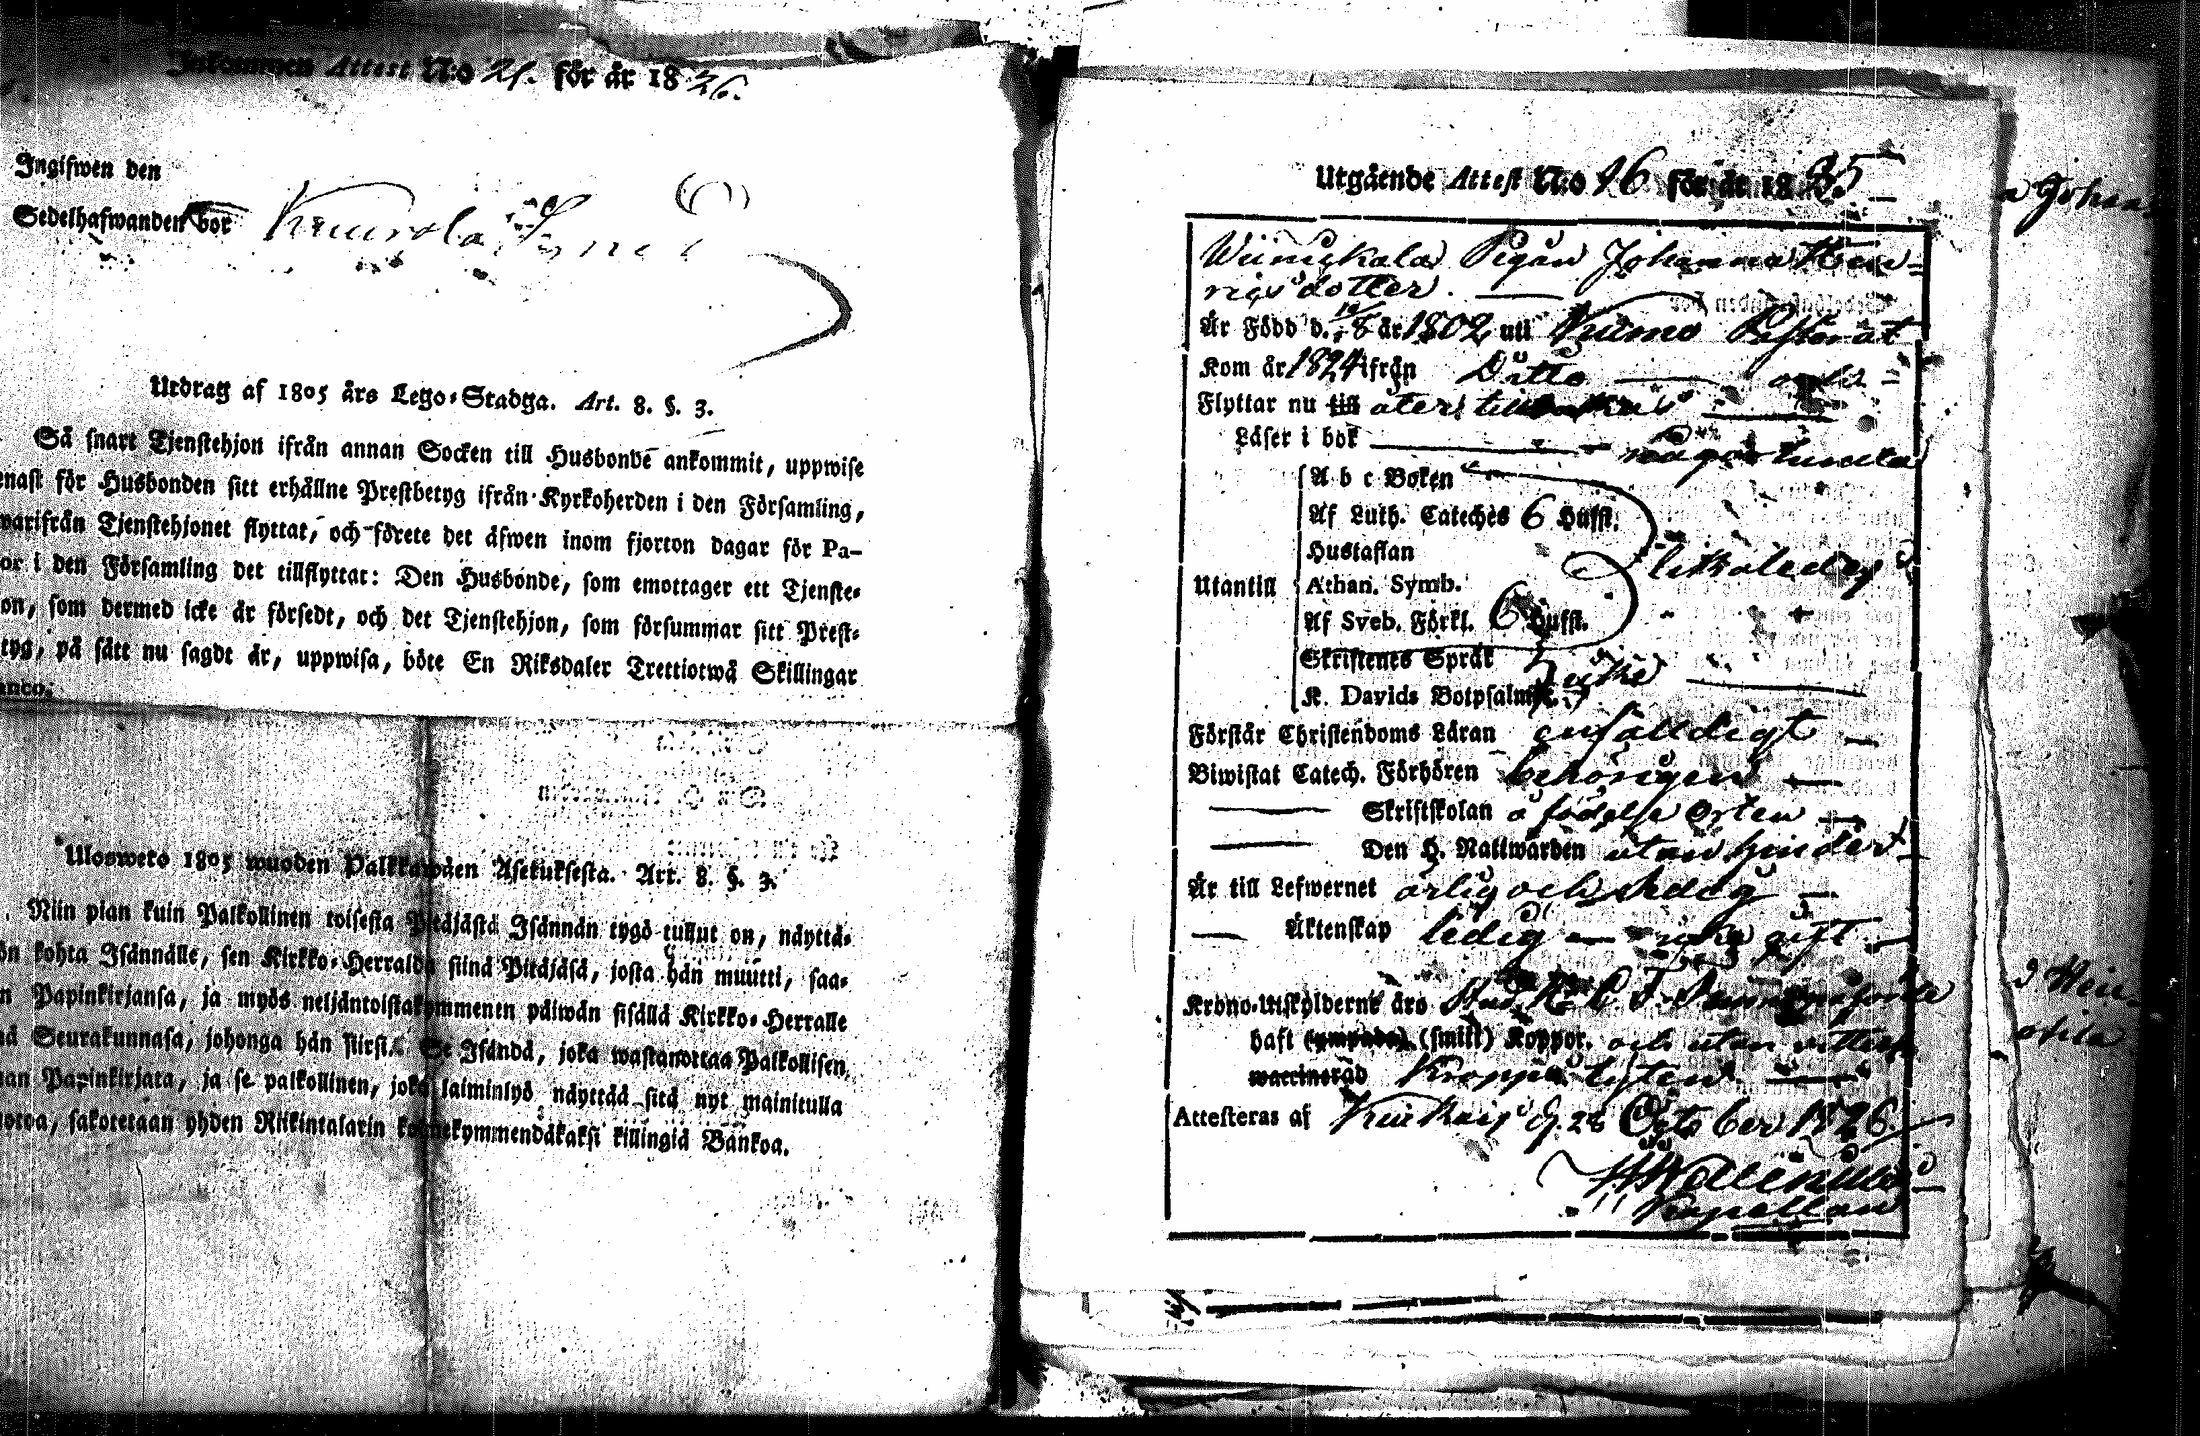 Inkommen Attest N:o 21. för år 1826.
Ingifwen den
Sedelhafwanden bor
Utdrag af 1805 års Lego-Stadga. Art. 8. §. 3.
Så snart Tjenstehjon ifrån annan Socken till Husbonde ankommit, uppwise
enast för Husbonden sitt erhållne Prestbetyg ifrån Kyrkoherden i den Församling,
warifrån Tjenstehjonet flyttat, och förete det äfwen inom fjorton dagar för Pa-
or i den Församling det tillflyttat: Den Husbonde, som emottager ett Tjenste-
on, som dermed icke är försedt, och det Tjenstehjon, som försummar sitt Prest-
tyg, på sätt nu sagdt är, uppwisa, böte En Riksdaler Trettiotwå Skillingar
anco.
Ulosweto 1805 wuoden Palkkawäen Asetuksesta. Art. 8. §. 3.
Niin pian kuin Palkollinen toisesta Pitäjästä Isännän tygö tullut on, näyttä-
ön kohta Isännälle, sen Kirkko-Herralda siinä Pitäjäsä, josta hän muutti, saa-
n Papinkirjansa, ja myös neljäntoistakymmenen päiwän sisällä Kirkko-Herralle
nä Seurakunnasa, johonga hän siirsi. Se Isändä, joka wastanottaa Palkollisen,
man Papinkirjata, ja se palkollinen, joka laiminlyö näyttää sitä nyt mainitulla
uotoa, sakotetaan yhden Riikintalarin kolmekymmendäkaksi killingiä Bankoa.
Utgående Attest N:o 16 för år 1825
Pigan Johanna Hen-
ricsdotter.
Är Född d. 8 år 1802 uti Kumo Pastorat
Kom år 1824 ifrån Ditto
Flyttar nu till åter tillbakas
Läser i bok någorlunda
A b c Boken
Af Luth. Cateches 6 Hufst.
Hustaflan
Utantill Athan. Symb.
Af Sveb. Förkl. 6 Hufst.
Skriftenes Språk
K. Davids Botpsalm
Förstår Christendoms Läran enfalldigt
Biwistat Catech. Förhören behörigen
Skriftskolan å födelse orten
Den H. Nattwarden utan hinder
Är till Lefwernet ärlig och sedig
Äktenskap ledig icke gift
Krono-Utskylderne äro
haft (ympade) (smitt) Koppor, och utan
waccinerad Kropps lyten
Attesteras af d. 28 October 1826.
Kapellan